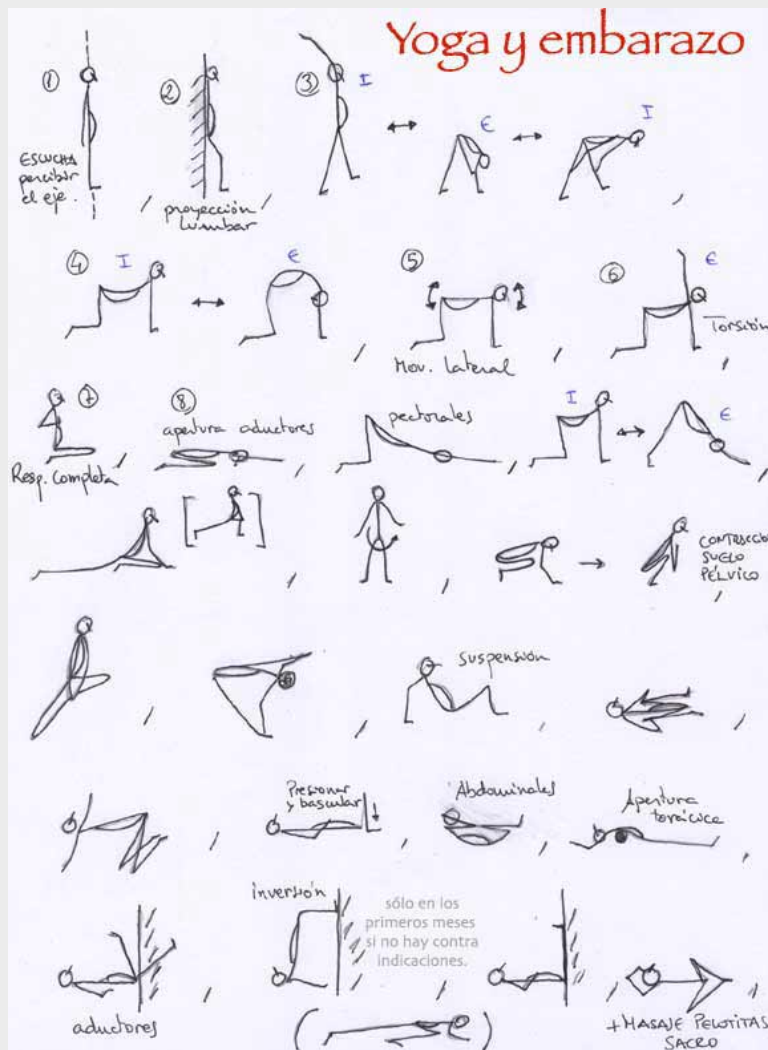 Yoga y embarazo
①
②
③
I
E
I
ESCUCHA
percibir
el eje.
proyección
lumbar
④
I
E
⑤
⑥
E
Mov. lateral
Torsión
⑦
⑧
apertura aductores
pectorales
I
E
Resp. Completa
CONTRACCIO
SUELO
PÉLVICO
suspensión
Presionar
y bascular
Abdominales
Apertura
torácica
inversión
sólo en los
primeros meses
si no hay contra
indicaciones.
aductores
+MASAJE PELOTITAS
SACRO